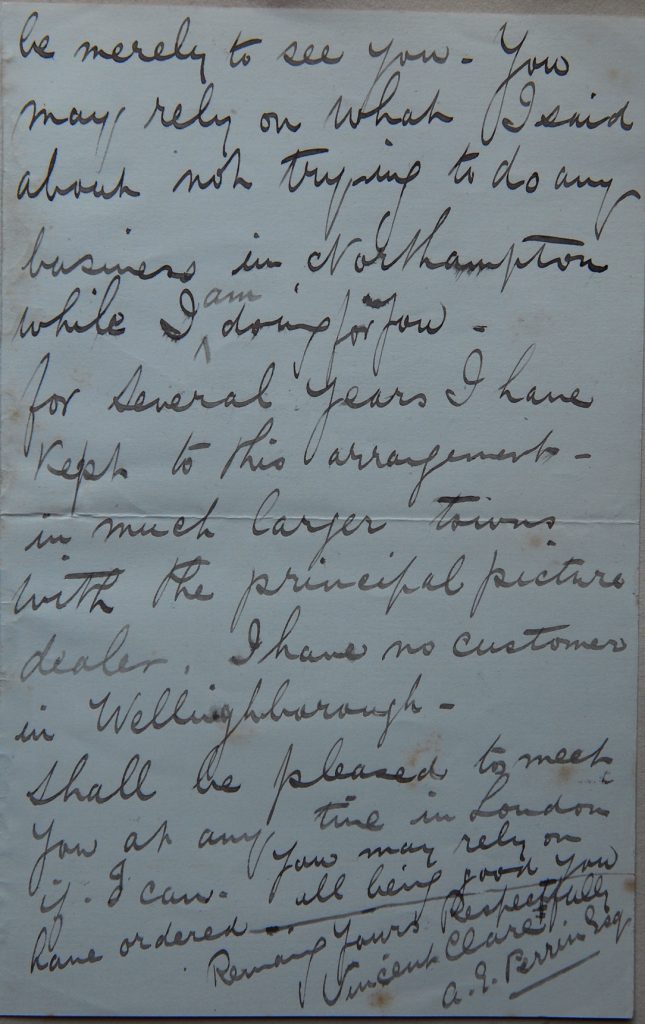 be merely to see you - You
may rely on what I said
about not trying to do any
business in Northampton
while I am doing for you -
for several years I have
kept to this arrangement -
in much larger towns
with the principal picture
dealer. I have no customer
in Wellinghborough -
Shall be pleased to meet
you at any time in London
if I can. You may rely on
all being good you
have ordered -
Remain Yours Respectfully
Vincent Clare
A. E. Perrin Esq